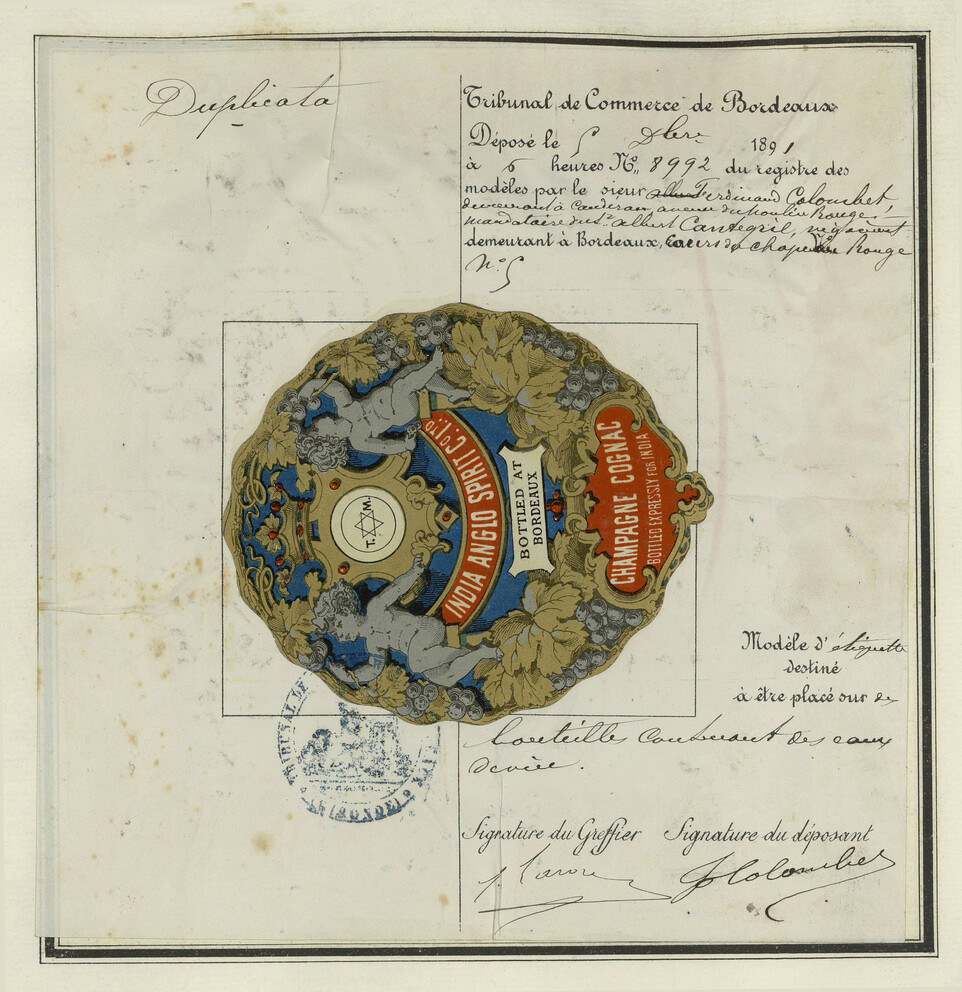 Duplicata
Tribunal de Commerce de Bordeaux
Déposé le 5 Xbre 1891
à 6 heures No. 8992 du registre des
modèles par le sieur Ferdinand Colombet,
demeurant à Caudéran avenue du moulin Rouge,
mandataire du sr. Albert Cantegril, négociant
demeurant à Bordeaux, cours de chapeau Rouge
No. 5
T. M.
INDIA ANGLO SPIRIT Co. LTD.
BOTTLED AT
BORDEAUX
CHAMPAGNE COGNAC
BOTTLED EXPRESSLY FOR INDIA
Modèle d'étiquette
destiné
à être placé sur des
bouteilles contenant des eaux
de vie.
TRIBUNAL DE
(GIRONDE)
Signature du Greffier Signature du déposant
F Colombet